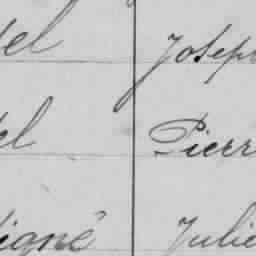 el Josep
el Pierr
igné Julie